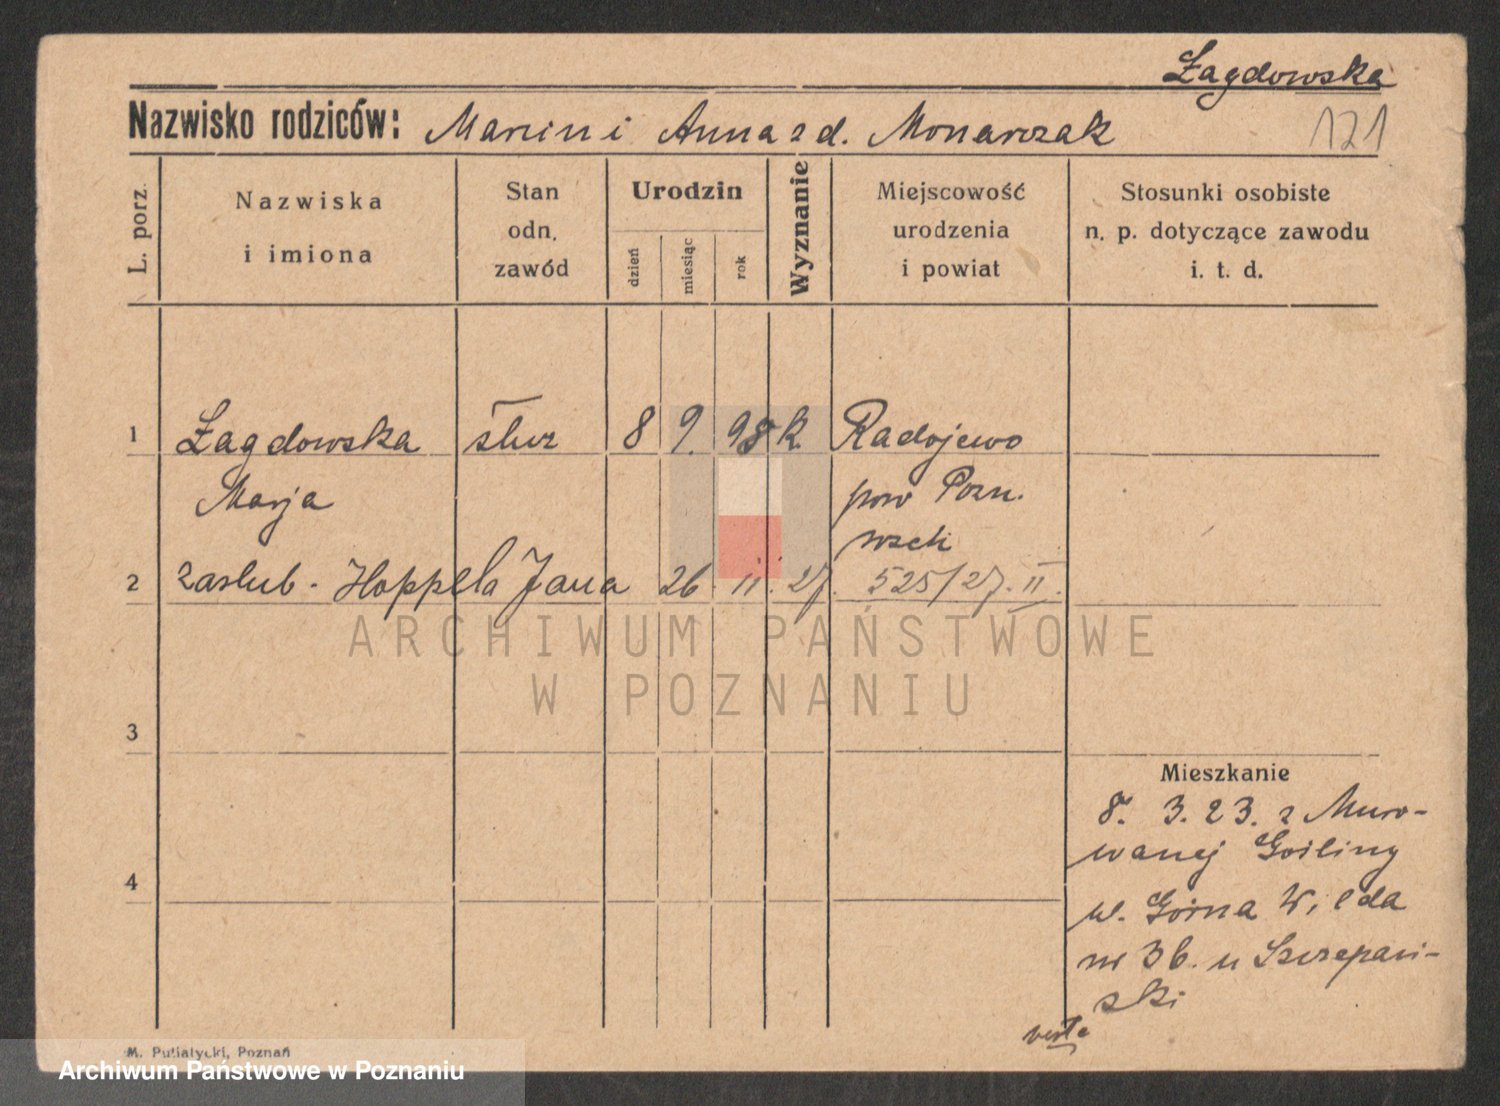 Żagdowska
Nazwisko rodziców: Marcin i Anna z d. Monarczak
121
L. porz.
Nazwiska
i imiona
Stan
odn.
zawód
Urodzin
dzień
miesiąc
rok
Wyznanie
Miejscowość
urodzenia
i powiat
Stosunki osobiste
n. p. dotyczące zawodu
i. t. d.
1 Żagdowska służ 8 9. 98 k. Radojewo
Marja pow Pozn.
wsch
2 zaślub. Hoppela Jana 26. 11. 27. 525/27. II.
ARCHIWUM PAŃSTWOWE
W POZNANIU
3
Mieszkanie
8. 3. 23. z Muro-
wanej Gośliny
4
ul. Górna Wilda
nr 36. u Szczepań-
ski
verte
M. Putiatycki, Poznań
Archiwum Państwowe w Poznaniu